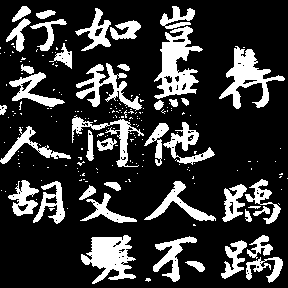 行踽踽
豈無他人不
如我同父嗟
行之人胡